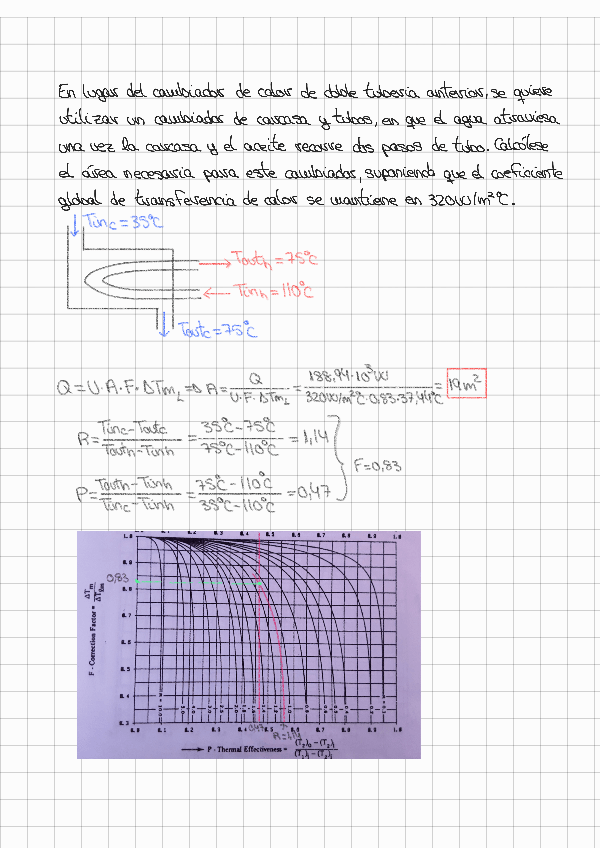 En lugar del cambiador de calor de doble tubería anterior, se quiere
utilizar un cambiador de carcasa y tubos, en que el agua atraviesa
una vez la carcasa y el aceite recorre dos pasos de tubo. Calcúlese
el área necesaria para este cambiador, suponiendo que el coeficiente
global de transferencia de calor se mantiene en 320W/m²ºC.
Tinc = 35ºC
Touth = 75ºC
Tinh = 110ºC
Toutc = 75ºC
Q = U·A·F·ΔTmL ⇒ A = Q / (U·F·ΔTmL) = 188,94·10³W / (320W/m²ºC·0,83·37,44ºC) = 19m²
R = (Tinc - Toutc) / (Touth - Tinh) = (35ºC - 75ºC) / (75ºC - 110ºC) = 1,14
F = 0,83
P = (Touth - Tinh) / (Tinc - Tinh) = (75ºC - 110ºC) / (35ºC - 110ºC) = 0,47
0.1 0.2 0.3 0.4 0.5 0.6 0.7 0.8 0.9 1.0
1.0
0.9
0,83
0.8
0.7
0.6
0.5
0.4
0.3
F - Correction Factor = ΔTm / ΔTlm
0.0 0.1 0.2 0.3 0.4 0,47 0.5 0.6 0.7 0.8 0.9 1.0
R=1,14
P - Thermal Effectiveness = (T2)o - (T2)i / (T1)i - (T2)i